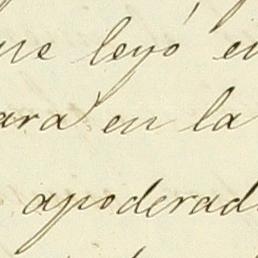 ue leyó en
ara en la
apoderad